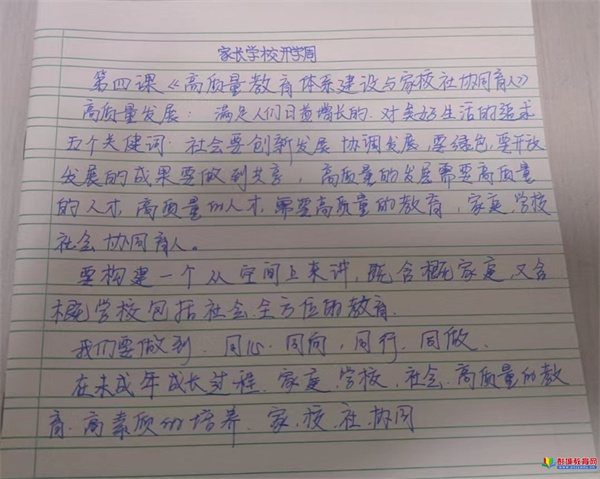 家长学校开学周
第四课《高质量教育体系建设与家校社协同育人》
高质量发展：满足人们日益增长的.对美好生活的追求
五个关键词：社会要创新发展 协调发展,要绿色,要开放
发展的成果要做到共享，高质量的发展需要高质量
的人才,高质量的人才,需要高质量的教育，家庭.学校
社会协同育人。
要构建一个从空间上来讲,既含概家庭,又含
概学校包括社会全方位的教育.
我们要做到.同心.同向,同行.同做.
在未成年成长过程.家庭.学校.社会.高质量的教
育.高素质的培养.家.校.社.协同
彭城教育网